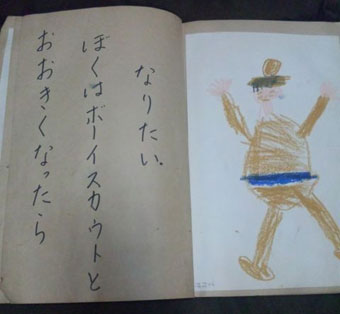 おおきくなったら
ぼくはボーイスカウトと
なりたい。